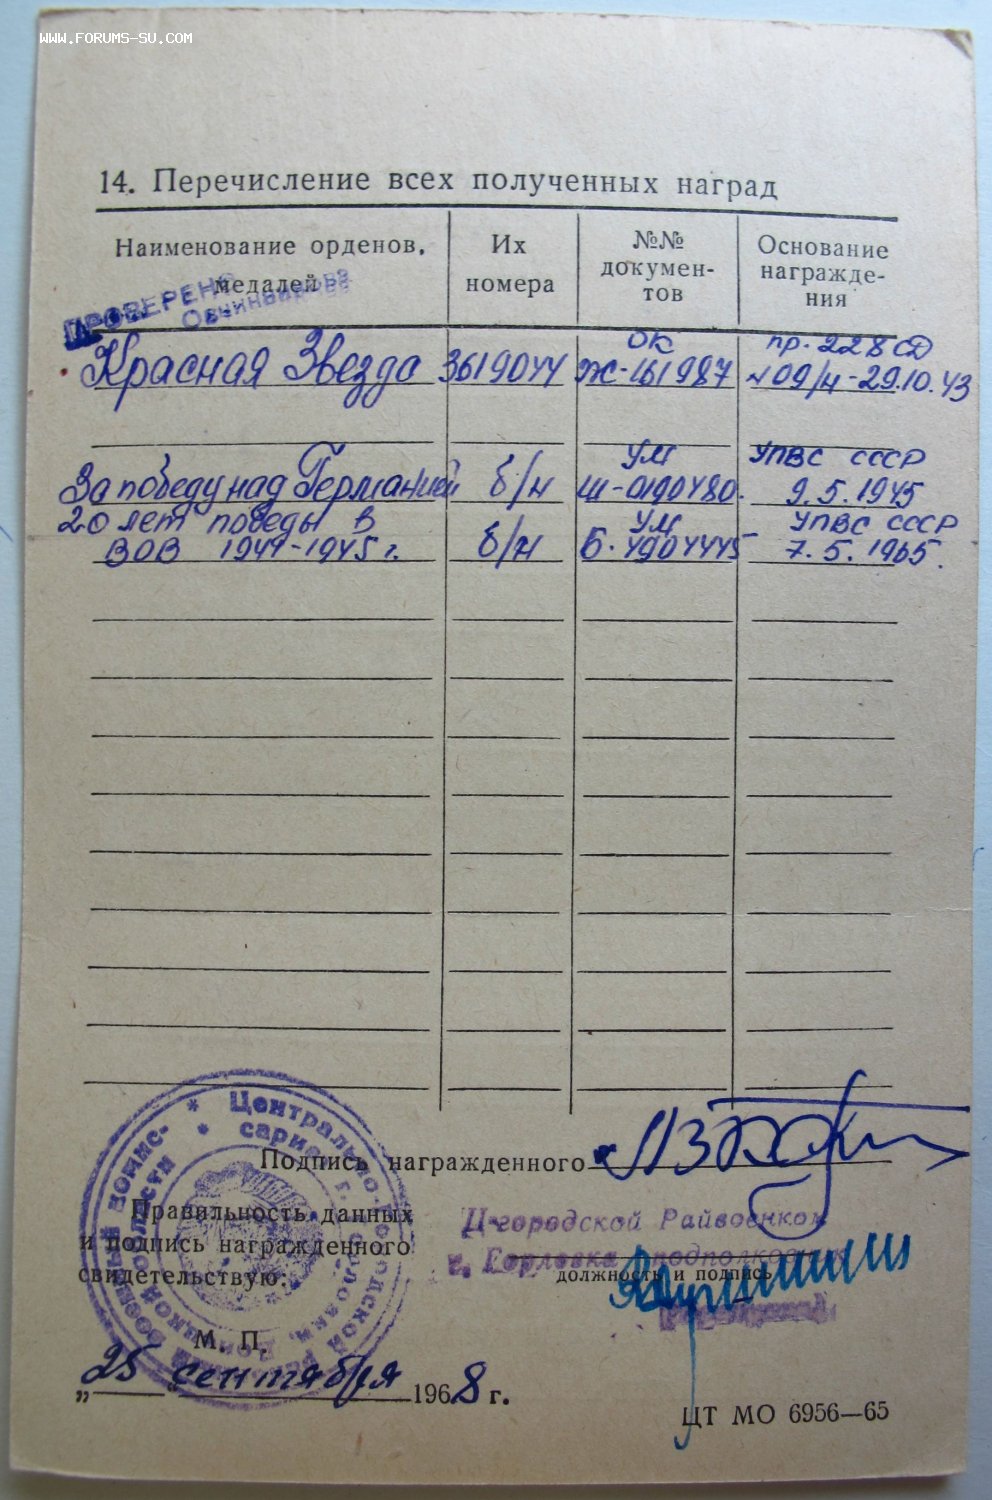 WWW.FORUMS-SU.COM
14. Перечисление всех полученных наград
Наименование орденов, медалей
Их номера
№№ докумен-
тов
Основание
награжде-
ния
ПРОВЕРЕНО
Красная Звезда 3619044 ОК Ж-161987 пр. 228 СД
№ 09/н - 29.10.43
За победу над Германией б/н УМ Ш-0190480. УПВС СССР
9.5.1945
20 лет победы в
ВОВ 1941-1945 г. б/н УМ Б.4904445 УПВС СССР
7.5.1965.
Подпись награжденного
Правильность данных
и подпись награжденного
свидетельствую:
Ц-городской Райвоенком
г. Горловка подполковник
должность и подпись
М. П.
„25 сентября 1968 г.
ЦТ МО 6956—65